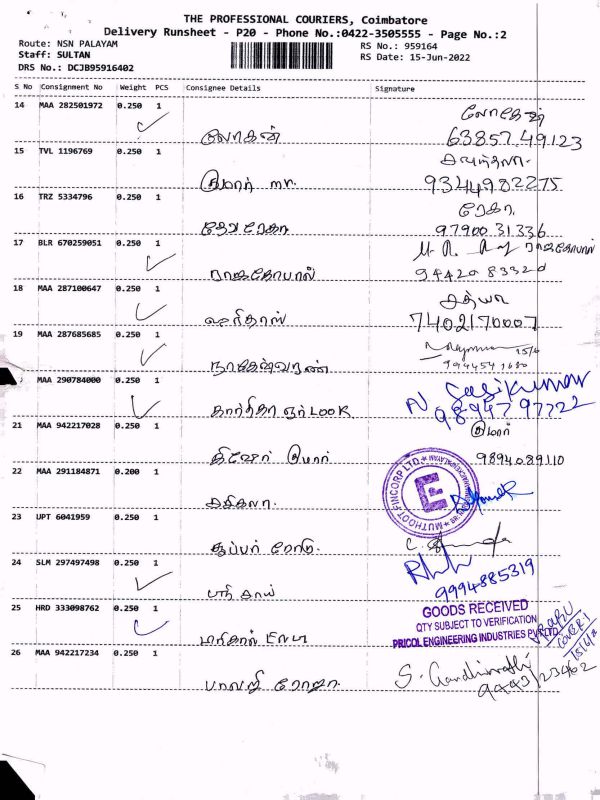 THE PROFESSIONAL COURIERS, Coimbatore
Delivery Runsheet - P20 - Phone No.:0422-3505555 - Page No.:2
Route: NSN PALAYAM
RS No.: 959164
Staff: SULTAN
RS Date: 15-Jun-2022
DRS No.: DCJB95916402
S No Consignment No Weight PCS Consignee Details Signature
14 MAA 282501972 0.250 1
லோகேஷ்
லோகன்
63857 49123
15 TVL 1196769 0.250 1
குமார் mr.
9344982275
16 TRZ 5334796 0.250 1
ரேகா
97900 31336
17 BLR 670259051 0.250 1
ராஜகோபால்
ராஜகோபால்
94420 83320
18 MAA 287100647 0.250 1
சத்யா
ஹரிதாஸ்
7402170007
19 MAA 287685685 0.250 1
15/6
நாகேஷ்வரன்
MAA 290784000 0.250 1
N Sasikumar
LOOK
98947 97722
21 MAA 942217028 0.250 1
குமார்
கிஷோர் குமார்
9894089110
22 MAA 291184871 0.200 1
சசிகலா
MUTHOOT FINCORP LTD.
E
23 UPT 6041959 0.250 1
சூப்பர்
24 SLM 297497498 0.250 1
9994885319
25 HRD 333098762 0.250 1
GOODS RECEIVED
QTY SUBJECT TO VERIFICATION
PRICOL ENGINEERING INDUSTRIES PVT LTD
COVER 1
15/6/2
26 MAA 942217234 0.250 1
பாலாஜி ரோஜா
S. Gandhimathi
9443/23462